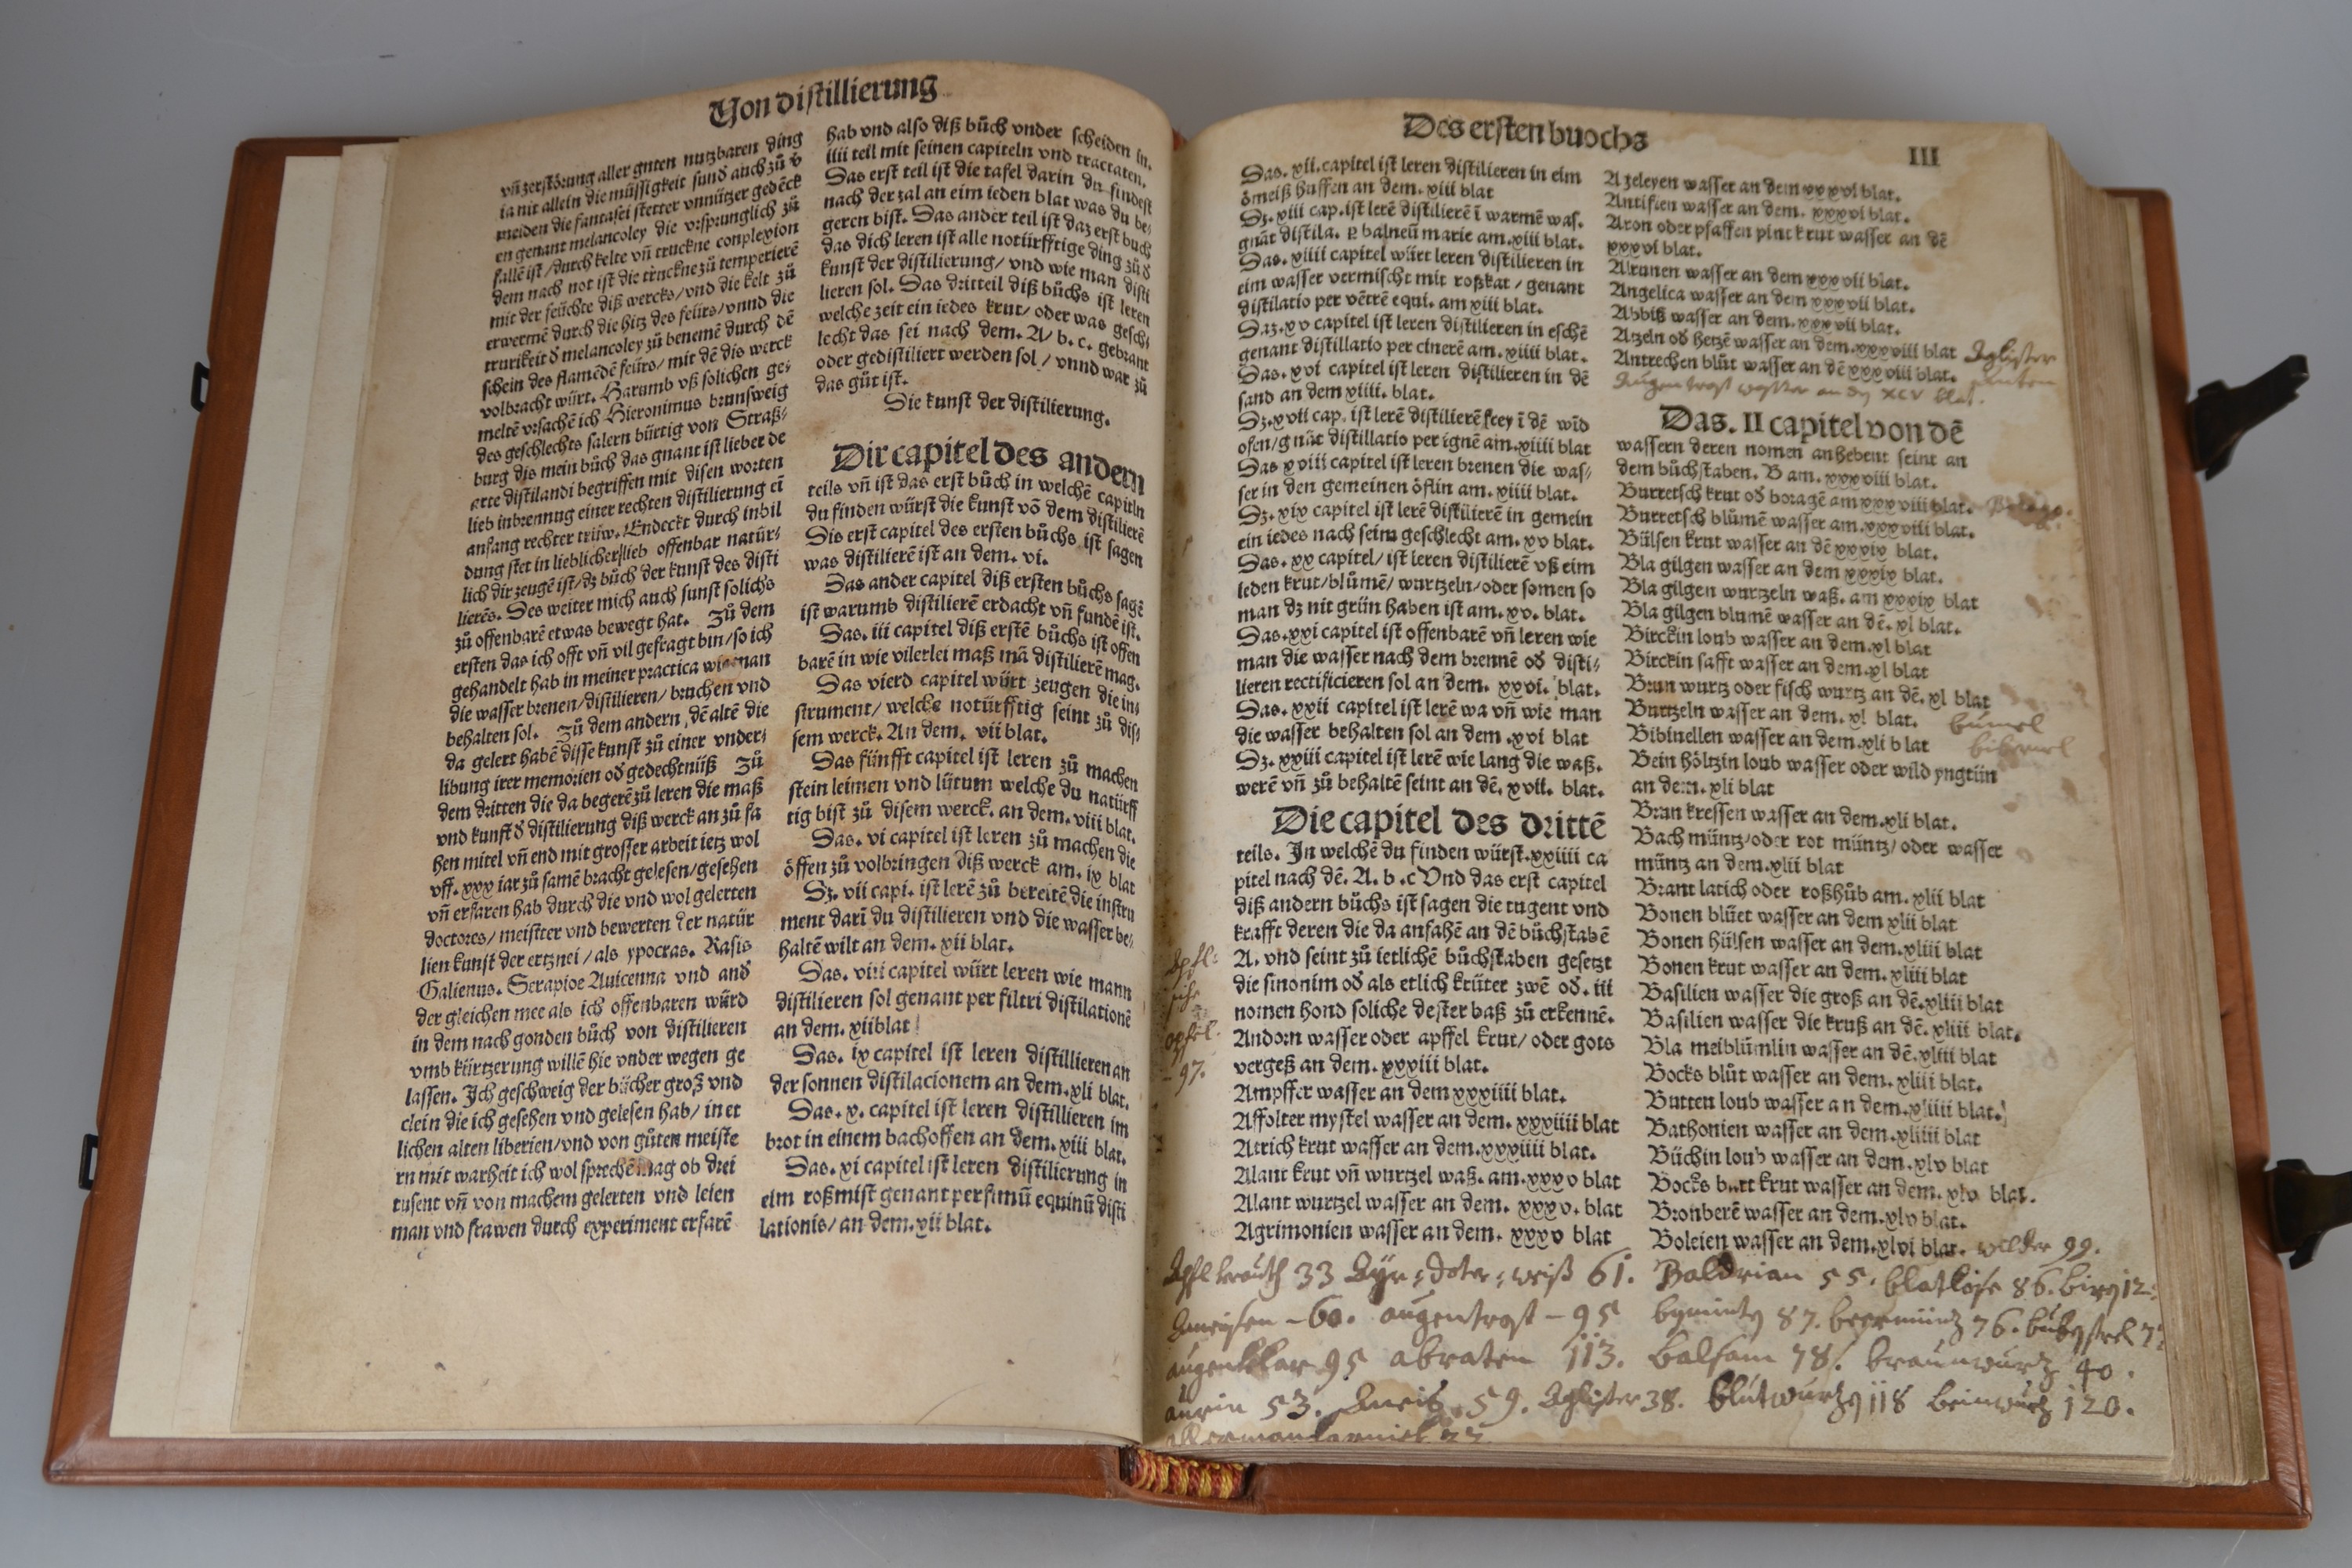 Von distillierung
vñ zerstörung aller guten nutzbaren ding
ia nit allein die müssigkeit sund auch zů v̈
meiden die fantasei stetter vnnützer gedēck
en genant melancoley die vrsprunglich zů
fallē ist/durch kelte vñ truckne conplexion
dem nach not ist die trückne zů temperierē
mit der feüchte diß wercks/vnd die kelt zů
erwermē durch die hitz des feürs/vnnd die
trurikeit d̄ melancoley zů benemē durch dē
schein des flamēdē feürs/mit dē dis werck
volbracht würt. Harumb vß solichen ge⸗
meltē vrsachē ich Hieronimus brunsweig
des geschlechts salern bürtig von Straß⸗
burg dis mein bůch das gnant ist lieber de
arte distilandi begriffen mit disen worten
lieb inbrennug einer rechten distilierung eī
anfang rechter trüw. Endeckt durch inbil
dung stet in lieblicher lieb offenbar natür⸗
lich dir zeugē ist/dz bůch der kunst des disti
lierēs. Des weiter mich auch sunst solichs
zů offenbarē etwas bewegt hat. Zů dem
ersten das ich offt vñ vil gefragt bin/so ich
gehandelt hab in meiner practica wie man
die wasser brenen/distilieren/bruchen vnd
behalten sol. Zů dem andern dē altē die
da gelert habē disse kunst zů einer vnder⸗
libung irer memorien od̄ gedechtnüß Zů
dem dritten die da begerē zů leren die maß
vnd kunst d̄ distilierung diß werck an zů fa
hen mitel vñ end mit grosser arbeit ietz wol
vff. xxx iar zů samē bracht gelesen/gesehen
vñ erfaren hab durch die vnd wol gelerten
doctores/meister vnd bewerten der natür
lien kunst der ertznei/als ypocras. Rasis
Galienus. Serapioe Auicenna vnd and̄
der gleichen mee als ich offenbaren würd
in dem nach gonden bůch von distilieren
vmb kürtzerung willē hie vnder wegen ge
lassen. Ich geschweig der bücher groß vnd
clein die ich gesehen vnd gelesen hab/in et
lichen alten liberien/vnd von gůten meiste
rn mit warheit ich wol sprechē mag ob drei
tusent vñ von machem gelerten vnd leien
man vnd frawen durch experiment erfarē
hab vnd also diß bůch vnder scheiden in.
iiii teil mit seinen capiteln vnd tractaten.
Das erst teil ist die tafel darin du findest
nach der zal an eim ieden blat was du be⸗
geren bist. Das ander teil ist daz erst buch
das dich leren ist alle notürfftige ding zů d̄
kunst der distilierung/vnd wie man disti
lieren sol. Das dritteil diß bůchs ist leren
welche zeit ein iedes krut/oder was gesch⸗
lecht das sei nach dem. A/ b. c. gebrant
oder gedistiliert werden sol/vnnd war zů
das gůt ist.
Die kunst der distilierung.
Dir capitel des andern
teils vñ ist das erst bůch in welchē capitln
du finden würst die kunst vō dem distilierē
Dis erst capitel des ersten bůchs ist sagen
was distilierē ist an dem. vi.
Das ander capitel diß ersten bůchs sagē
ist warumb distilierē erdacht vñ fundē ist.
Das. iii capitel diß erstē bůchs ist offen
barē in wie vilerlei maß mā distilierē mag.
Das vierd capitel würt zeugen die in⸗
strument/welche notürfftig seint zů dis⸗
sem werck. An dem. vii blat.
Das fünfft capitel ist leren zů machen
stein leimen vnd lůtum welche du natürff
tig bist zů disem werck. an dem. viii blat.
Das. vi capitel ist leren zů machen die
öffen zů volbringen diß werck am. ix blat
Dz. vii capi. ist lerē zů bereitē die instru
ment darī du distilieren vnd die wasser be⸗
haltē wilt an dem. xii blat.
Das. viii capitel würt leren wie mann
distilieren sol genant per filtri distilationē
an dem. xii blat
Das. ix capitel ist leren distillieren an
der sonnen distilacionem an dem. xli blat.
Das. x. capitel ist leren distillieren im
brot in einem bachoffen an dem. xiii blat.
Das. xi capitel ist leren distilierung in
eim roßmist genant per fimū equinū disti
lationis/an dem. xii blat.
Des ersten buochs
III
Das. xii. capitel ist leren distilieren in eim
ömeiß huffen an dem. xiii blat
Dz. xiii cap. ist lerē distilierē ī warmē was.
gnāt distila. p balneū marie am. xiii blat.
Das. xiiii capitel würt leren distilieren in
eim wasser vermischt mit roßkat/genant
distilatio per vētrē equi. am xiii blat.
Daz. xv capitel ist leren distilieren in eschē
genant distillatio per cinerē am. xiiii blat.
Das. xvi capitel ist leren distilieren in dē
sand an dem xiiii. blat.
Dz. xvii cap. ist lerē distilierē frey ī dē wīd
ofen/gnāt distillatio per ignē am. xiiii blat
Das xviii capitel ist leren brenen die was⸗
ser in den gemeinen öflin am. xiiii blat.
Dz. xix capitel ist lerē distilierē in gemein
ein iedes nach seim geschlecht am. xv blat.
Das. xx capitel/ist leren distilierē vß eim
ieden krut/blůmē/wurtzeln/oder somen so
man dz nit grün haben ist am. xv. blat.
Das. xxi capitel ist offenbarē vñ leren wie
man die wasser nach dem brennē od̄ disti⸗
lieren rectificieren sol an dem. xxvi. blat.
Das. xxii capitel ist lerē wa vñ wie man
die wasser behalten sol an dem .xvi blat
Dz. xxiii capitel ist lerē wie lang die waß.
werē vñ zů behaltē seint an dē. xvii. blat.
Die capitel des drittē
teils. In welchē du finden würst. xxiiii ca
pitel nach dē. A. b .c Vnd das erst capitel
diß andern bůchs ist sagen die tugent vnd
krafft deren die da anfahē an dē bůchstabē
A. vnd seint zů ietlichē bůchstaben gesetzt
die sinonim od̄ als etlich krüter zwē od̄. iii
nomen hond soliche dester baß zů erkennē.
Andorn wasser oder apffel krut/oder gots
vergeß an dem. xxxiii blat.
Ampffer wasser an dem xxxiiii blat.
Affolter mystel wasser an dem. xxxiiii blat
Attich krut wasser an dem. xxxiiii blat.
Alant krut vñ wurtzel waß. am. xxxv blat
Alant wurtzel wasser an dem. xxxv. blat
Agrimonien wasser an dem. xxxv blat
Azeleyen wasser an dem xxxvi blat.
Antifien wasser an dem. xxxvi blat.
Aron oder pfaffen pint krut wasser an dē
xxxvi blat.
Alrunen wasser an dem xxxvii blat.
Angelica wasser an dem xxxvii blat.
Abbiß wasser an dem. xxxvii blat.
Atzeln od̄ hetzē wasser an dem. xxxviii blat Aglister
Antrechen blůt wasser an dē xxxviii blat.
Augen trost wasser an dem XCV blat.
Das. II capitel von dē
wassern deren nomen anhebent seint an
dem bůchstaben. B am. xxxviii blat.
Burretsch krut od̄ boragē am xxxviii blat.
Burretsch blůmē wasser am. xxxviii blat.
Bülsen krut wasser an dē xxxix blat.
Bla gilgen wasser an dem xxxix blat.
Bla gilgen wurtzeln waß. am xxxix blat
Bla gilgen blumē wasser an dē. xl blat.
Birckin loub wasser an dem. xl blat
Birckin safft wasser an dem. xl blat
Brun wurtz oder fisch wurtz an dē. xl blat
Burtzeln wasser an dem. xl blat.
Bibinellen wasser an dem. xli blat
Bein höltzin loub wasser oder wild yngrün
an dem. xli blat
Brun kressen wasser an dem. xli blat.
Bach müntz/oder rot müntz/oder wasser
müntz an dem. xlii blat
Brant latich oder roßhůb am. xlii blat
Bonen blüet wasser an dem xlii blat
Bonen hülsen wasser an dem. xliii blat
Bonen krut wasser an dem. xliii blat
Basilien wasser die groß an dē. xliii blat
Basilien wasser die kruß an dē. xliii blat.
Bla meiblümlin wasser an dē. xliii blat
Bocks blůt wasser an dem. xliii blat.
Butten loub wasser an dem. xliiii blat.
Bathonien wasser an dem. xliiii blat
Büchin loub wasser an dem. xlv blat
Bocks bart krut wasser an dem. xlv blat.
Bronberē wasser an dem. xlv blat.
Boleien wasser an dem. xlvi blat. wilder 99.
apfel
97.
Apfl krauth 33 Ayr dotter weiß 61.
Ameysen – 60. augentrost – 95
augenklar 95 abraten 113.
aurin 53. Aneis. 59. Aglister 38.
Baldrian 55. blatlose 86.
87. beermüntz 76.
balsam 78. braunwurtz 40.
blutwurtz 118 beinwurtz 120.